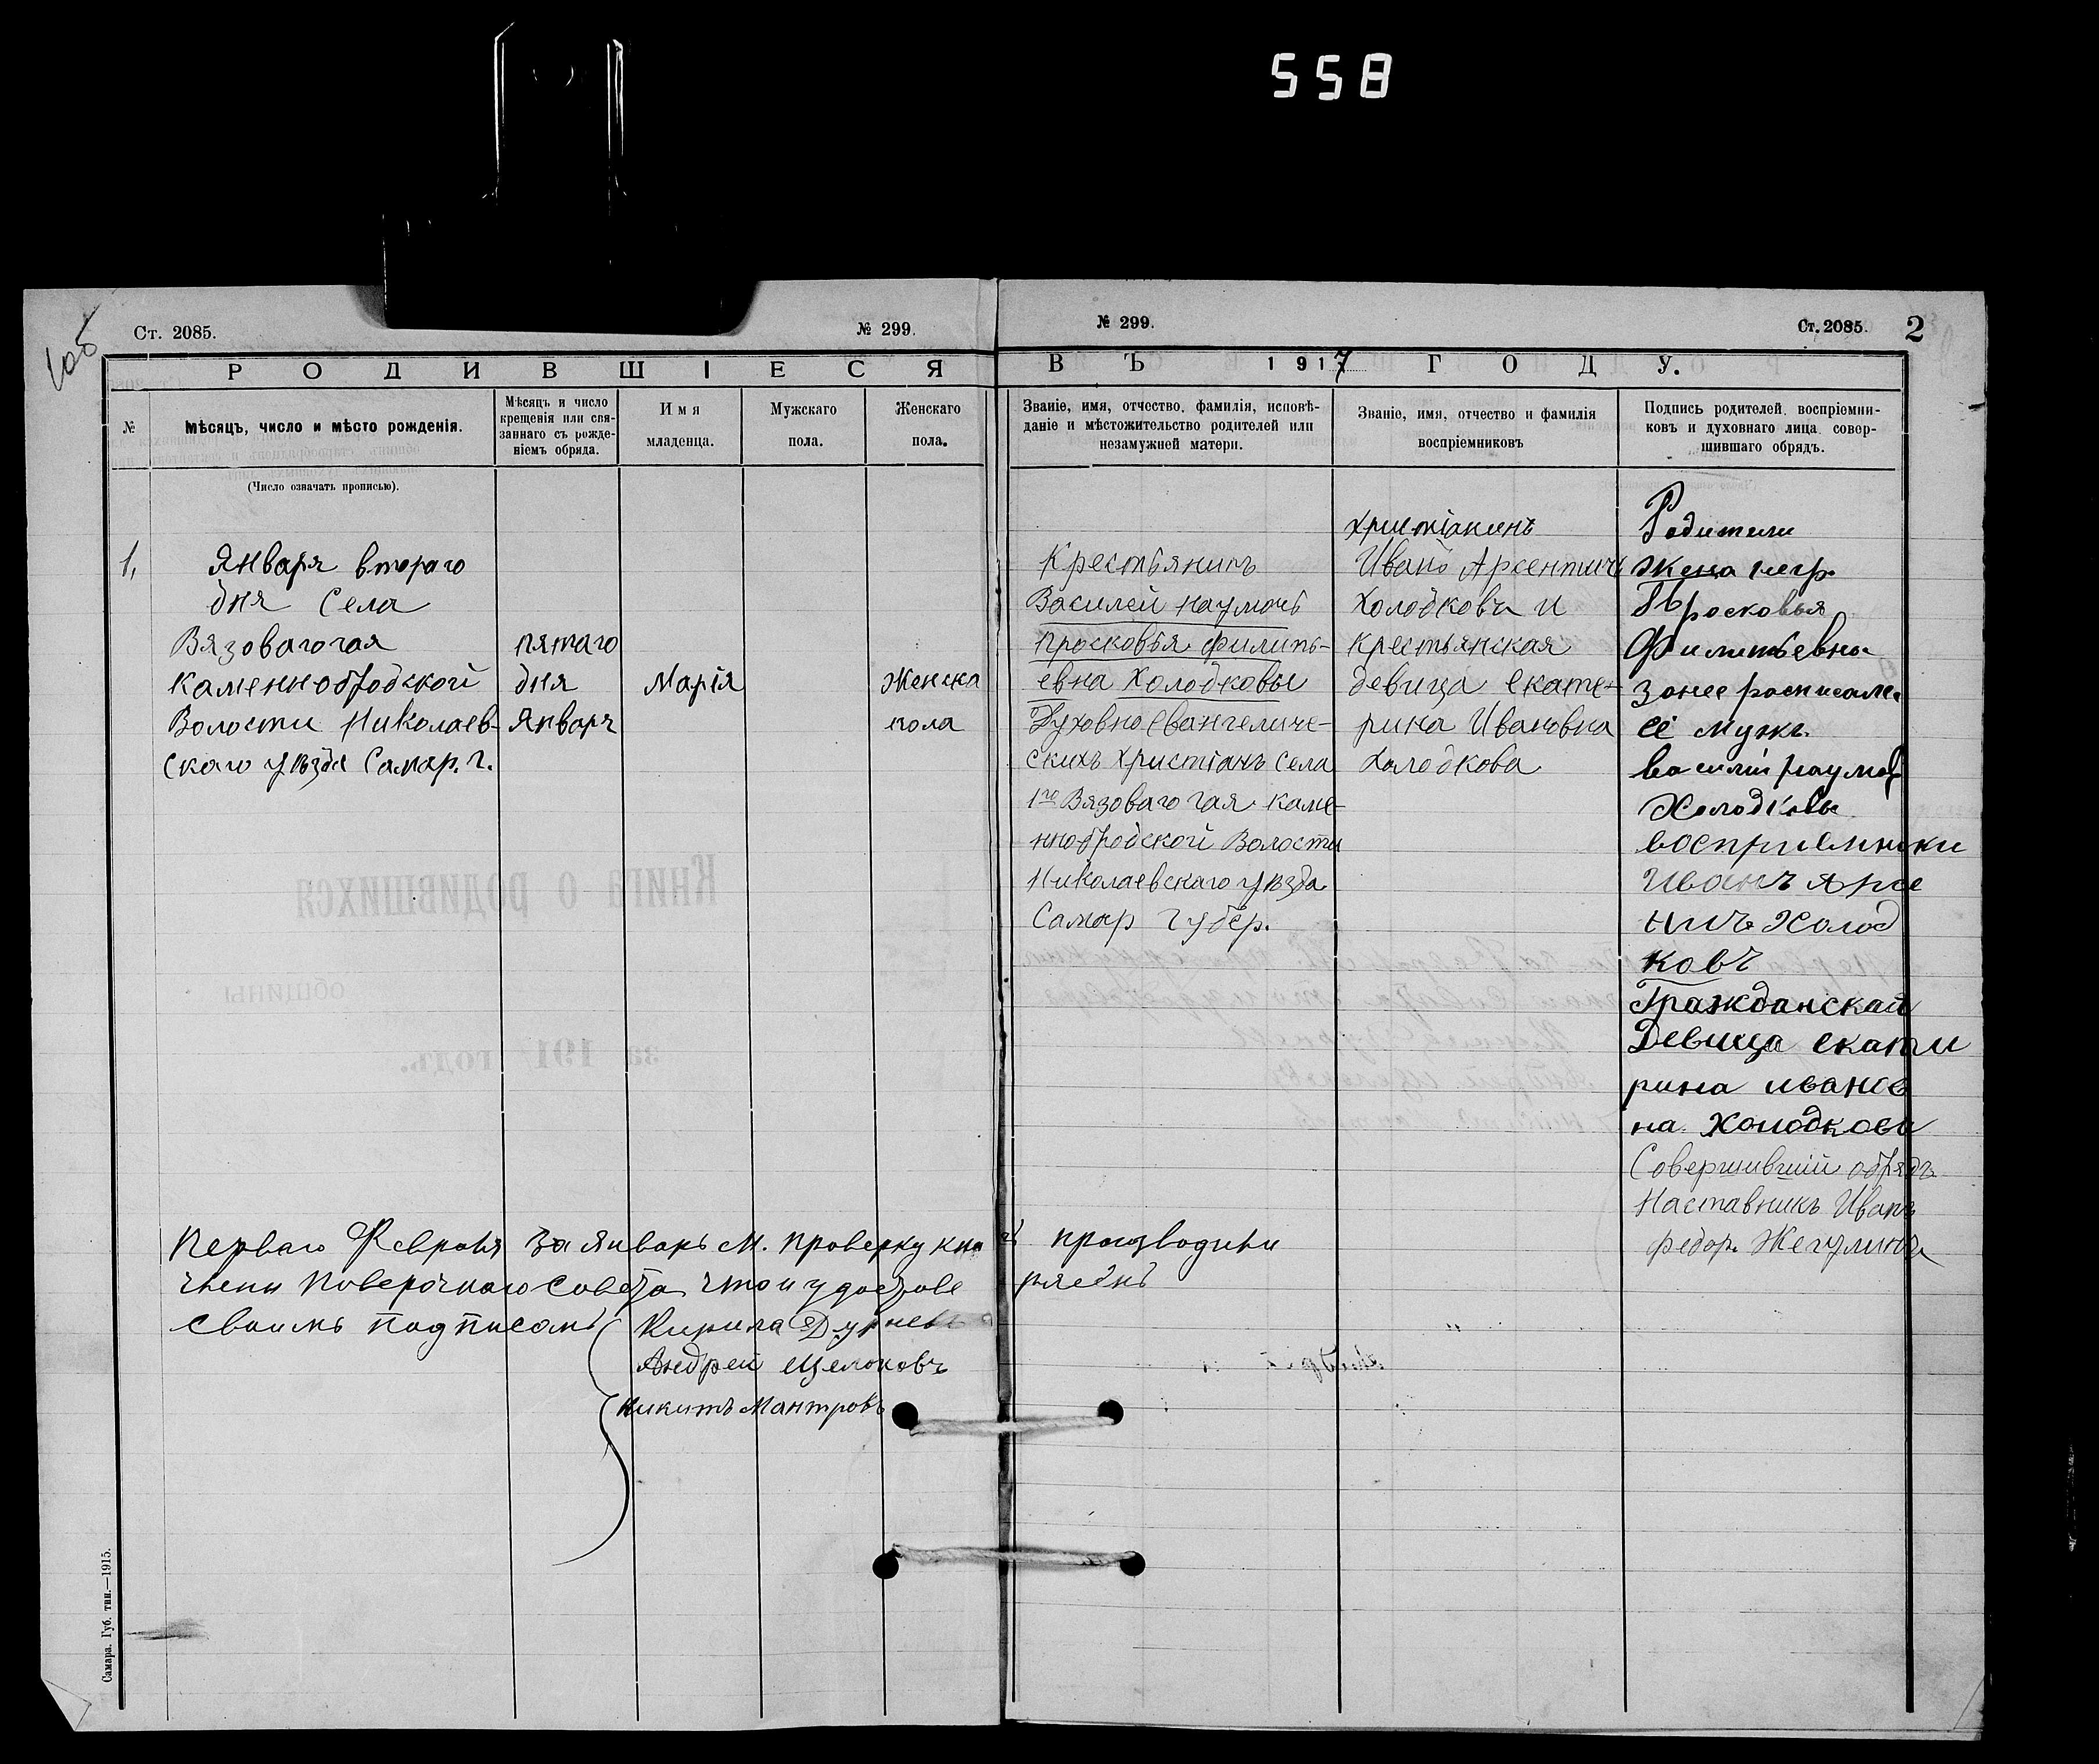 558
1об
Ст. 2085.
№ 299.
№ 299.
Ст. 2085.
2
РОДИВШІЕСЯ
ВЪ 1917 ГОДУ.
№
Мѣсяцъ, число и мѣсто рожденія.
Мѣсяцъ и число
крещенія или свя-
заннаго съ рожде-
ніемъ обряда.
Имя
младенца.
Мужскаго
пола.
Женскаго
пола.
Званіе, имя, отчество, фамилія, исповѣ-
даніе и мѣстожительство родителей или
незамужней матери.
Званіе, имя, отчество и фамилія
воспріемниковъ
Подпись родителей, воспріемни-
ковъ и духовнаго лица, совер-
шившаго обрядъ.
(Число означать прописью).
1,
Января втораго
дня Села
Вязовагогая
Каменнобродской
Волости Николаев-
скаго уѣзда Самар. г.
пятаго
дня
Января
Марія
Женска
пола
Крестьянинъ
Василей Наумочъ
Просковья Филипь-
евна Холодковы
Духовно Евангеличе-
скихъ Христіанъ Села
1го Вязоваго гая Каме-
ннобродской Волости
Николаевскаго уѣзда
Самар Губер.
христіанинъ
Иванъ Арсентичъ
Холодковъ и
Крестьянская
девица Екате-
рина Ивановна
Холодкова
Родители
жена негр.
Просковья
Филипьевна
за нее росписалс
её мужъ
василій наумов
Холодковъ
восприемники
Иванъ Арсе
ничъ Холод
ковъ
Гражданская
Девица екати
рина иванов
на Холодкова
Совершившій обрядъ
Наставникъ Иванъ
Федор. Жегулинъ
Перваго Февраля за Январь М. проверку кни производили
члены Поверочнаго Совета что и удостове ряемъ
своимъ подписомъ Кирила
Андрей Щелоковъ
Никитъ Мантровъ
Книга о родившихся
общины
за 1917 годъ.
Самара. Губ. тип.—1915.